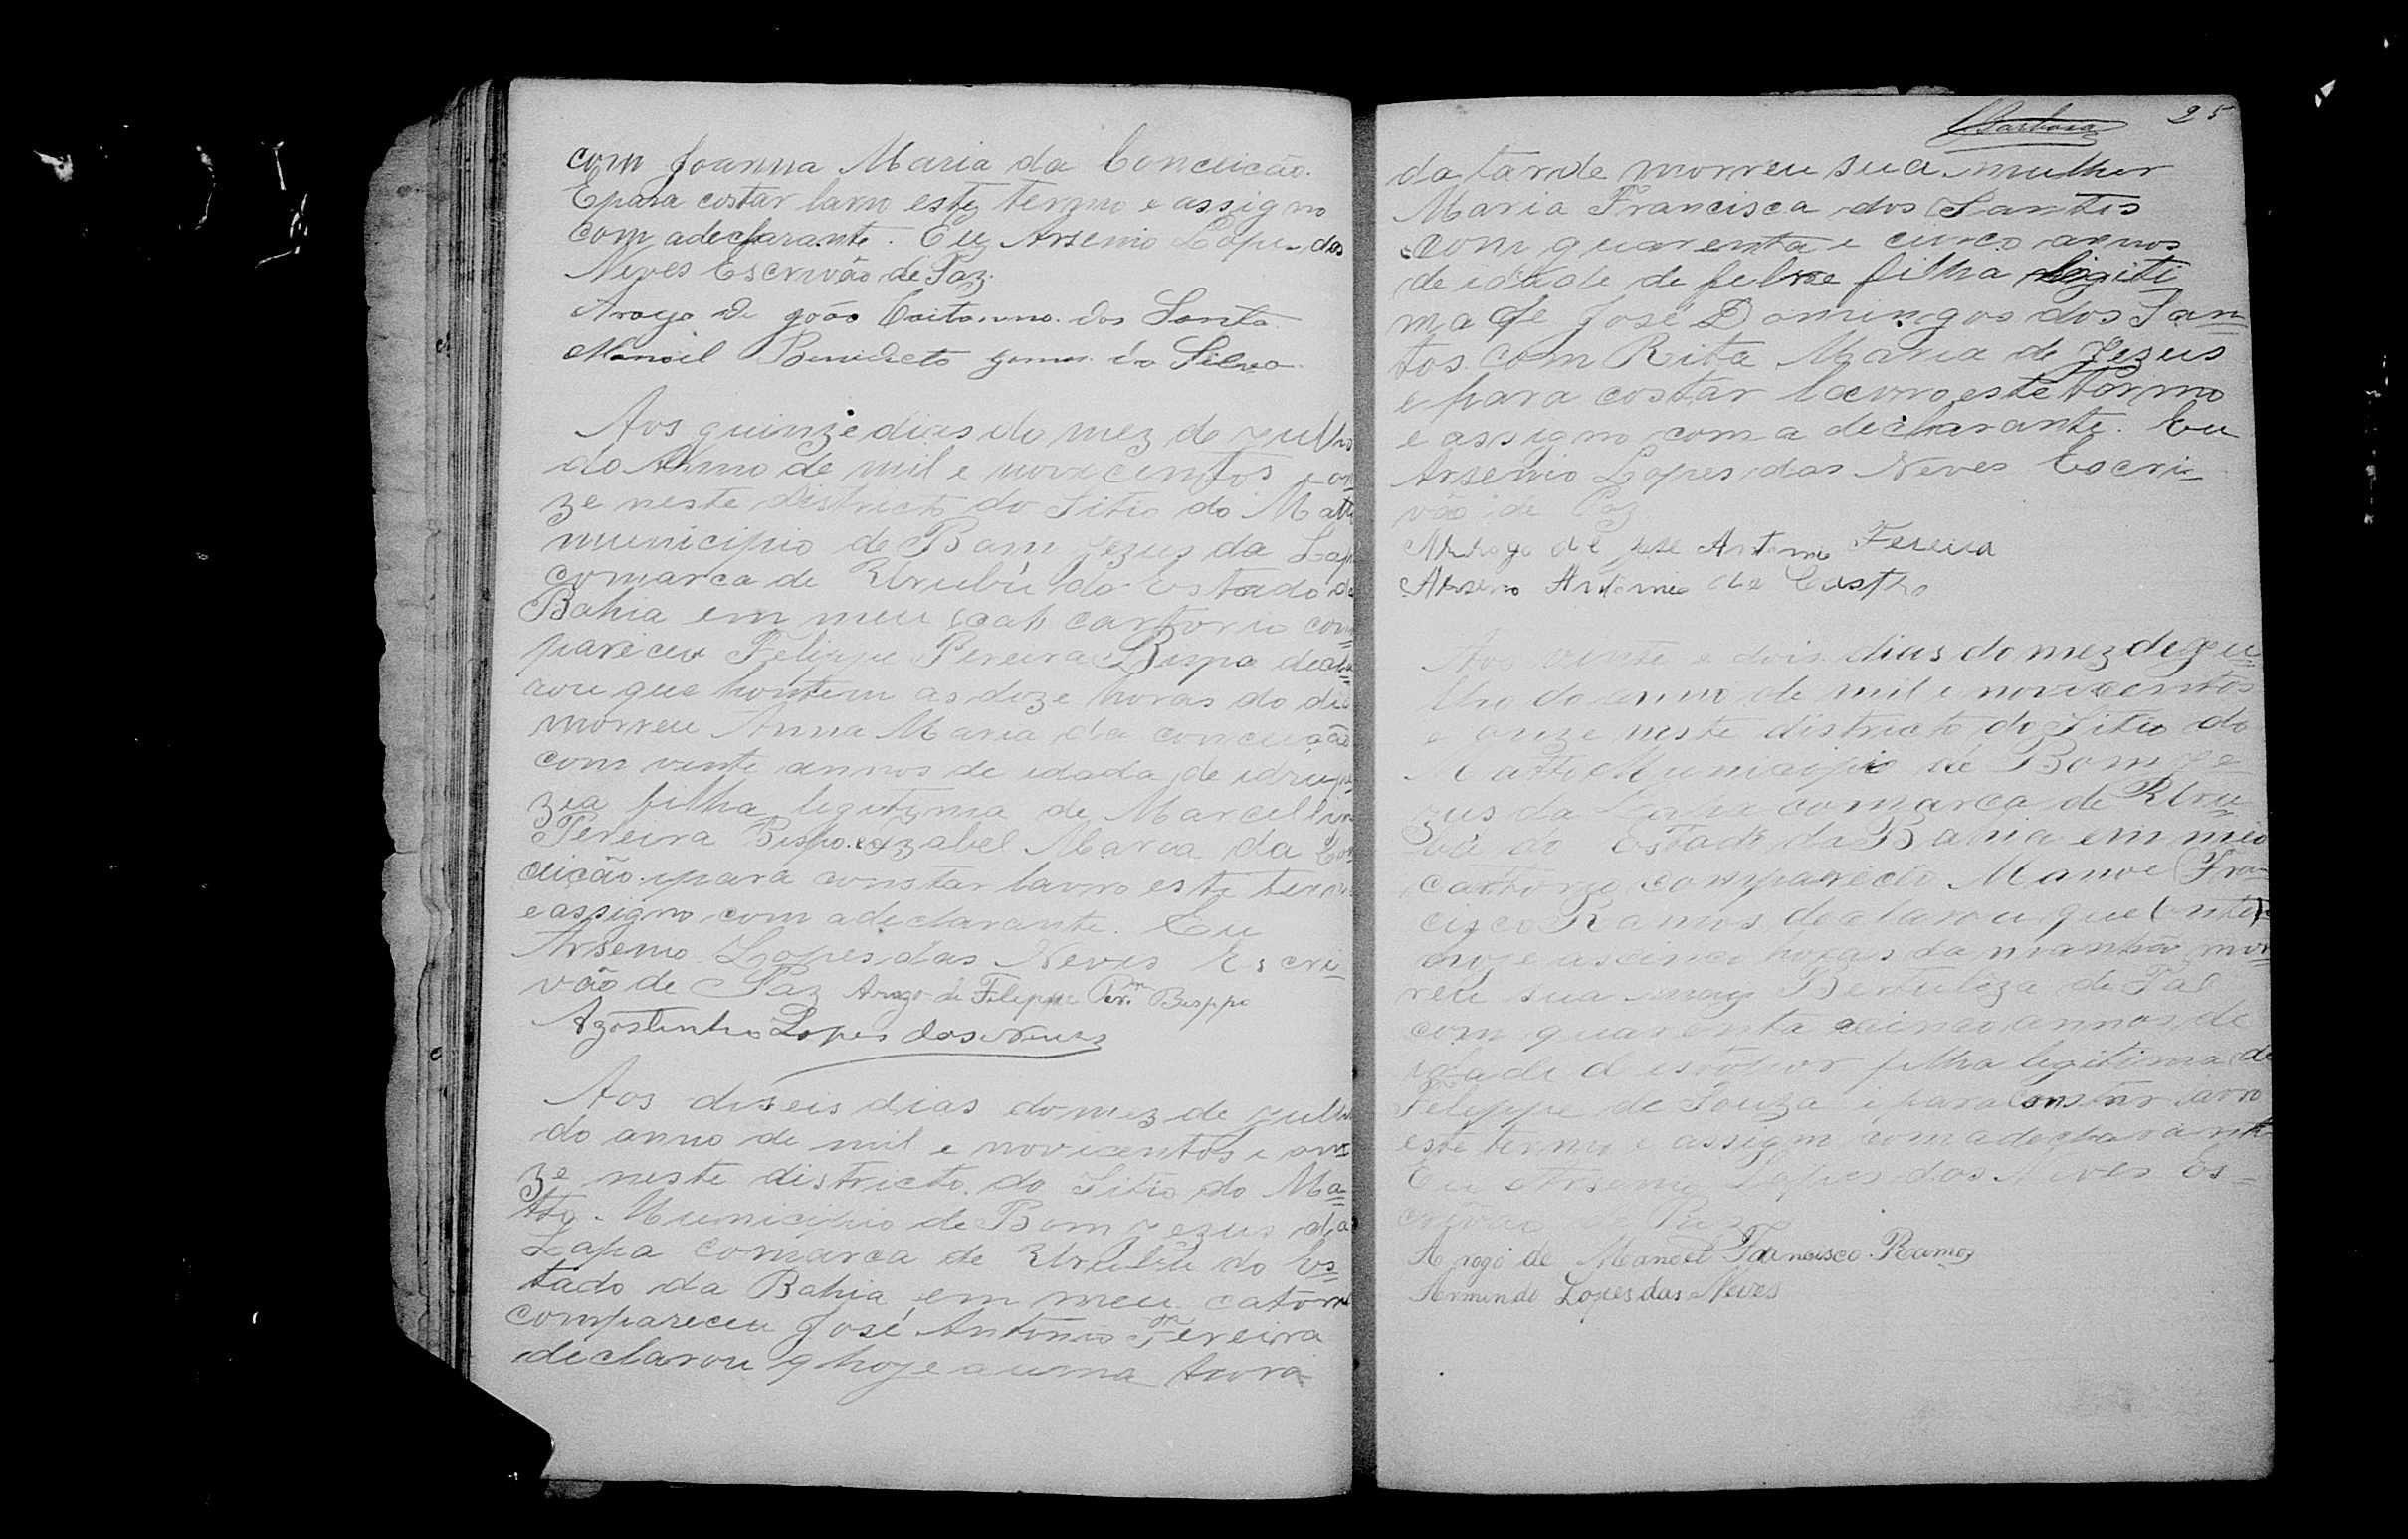 com Joanna Maria da Conceicão.
E para costar lavro este termo e assigno
com a declarante. Eu Arsenio Lopes das
Neves Escrivão de Paz.
Arogo de João Caitanno dos Santo
Manoel Benedicto Gomes da Silva
Aos quinze dias do mez de Julho
do Anno de mil e novicentos e on
ze neste districto do Sitio do Matto
municipio de Bom Jezus da Lapa
comarca de Urubú do Estado da
Bahia em meu cartorio com=
pareceu Felippe Pereira Bispo decla=
rou que hontem as doze horas do dia
morreu Anna Maria da conceicão
com vinte annos de idada, de idrup=
zia filha legitima de Marcellino
Pereira Bispo. e Izabel Maria da Con
ceicão. ipara constar lavro este termo
e assigno com a declarante. Eu
Arsenio Lopes das Neves Escri=
vão de Paz Arogo de Felippe Per.ra Bisppo
Agostinho Lopes das Neves
Aos diseis dias do mez de Julho
do anno de mil e novicentos e on=
ze neste districto do Sitio do Ma=
tto. Municipio de Bom Jezus da
Lapa comarca de Urubu do Es=
tado da Bahia em meu catorio
compareceu José Antonio Fereira
declarou q hoje a uma hora
Barbosa
25
da tarde morreu sua mulher
Maria Francisca dos Santos
com quarenta e cinco annos
de idade de febre filha legiti
ma de José Domingos dos San=
tos com Rita Maria de Jezus
e para costar lavro este termo
e assigno com a declarante. Eu
Arsenio Lopes das Neves Escri=
vão de Paz
Arrogo de José Antonio Fereira
Arseno Antonio de Castro
Aos vinte e dois dias do mez de Ju=
lho do anno de mil e novicentos
e onze neste districto do Sitio do
Matto Municipio de Bom Je=
zus da Lapa comarca de Uru=
bú do Estado da Bahia em meo
cartorio compareceu Manoel Fran
cisco Ramos declarou que
hoje as cinco horas da manhão mor=
reu sua may Bertuliza de Tal
com quarenta e cinco annos de
idade d filha legitima de
Felippe de Souza e para constar larro
este termo e assigno com a declarante
Eu Arsenio Lopes das Neves Es=
crivão de Paz
A rogo de Manoel Francisco Ramos
Armindo Lopes das Neves